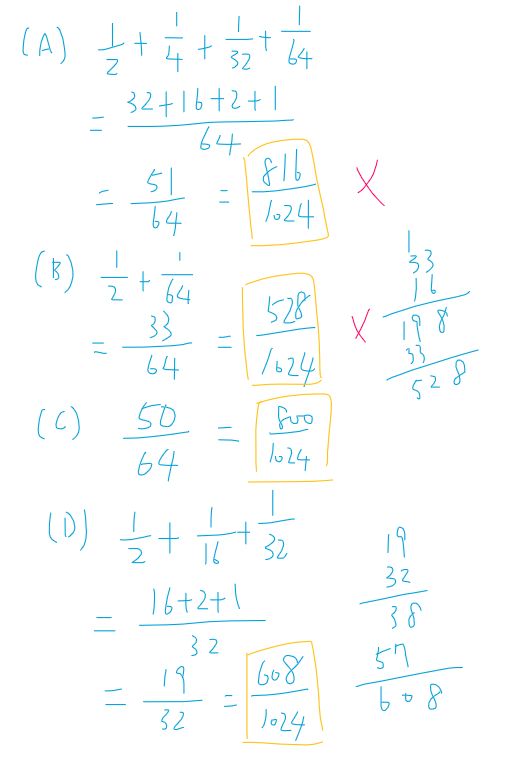 (A) 1/2 + 1/4 + 1/32 + 1/64
= (32+16+2+1)/64
= 51/64 = 816/1024 X
(B) 1/2 + 1/64
= 33/64 = 528/1024 X
1
33
16
198
33
528
(C) 50/64 = 800/1024
(D) 1/2 + 1/16 + 1/32
= (16+2+1)/32
= 19/32 = 608/1024
19
32
38
57
608